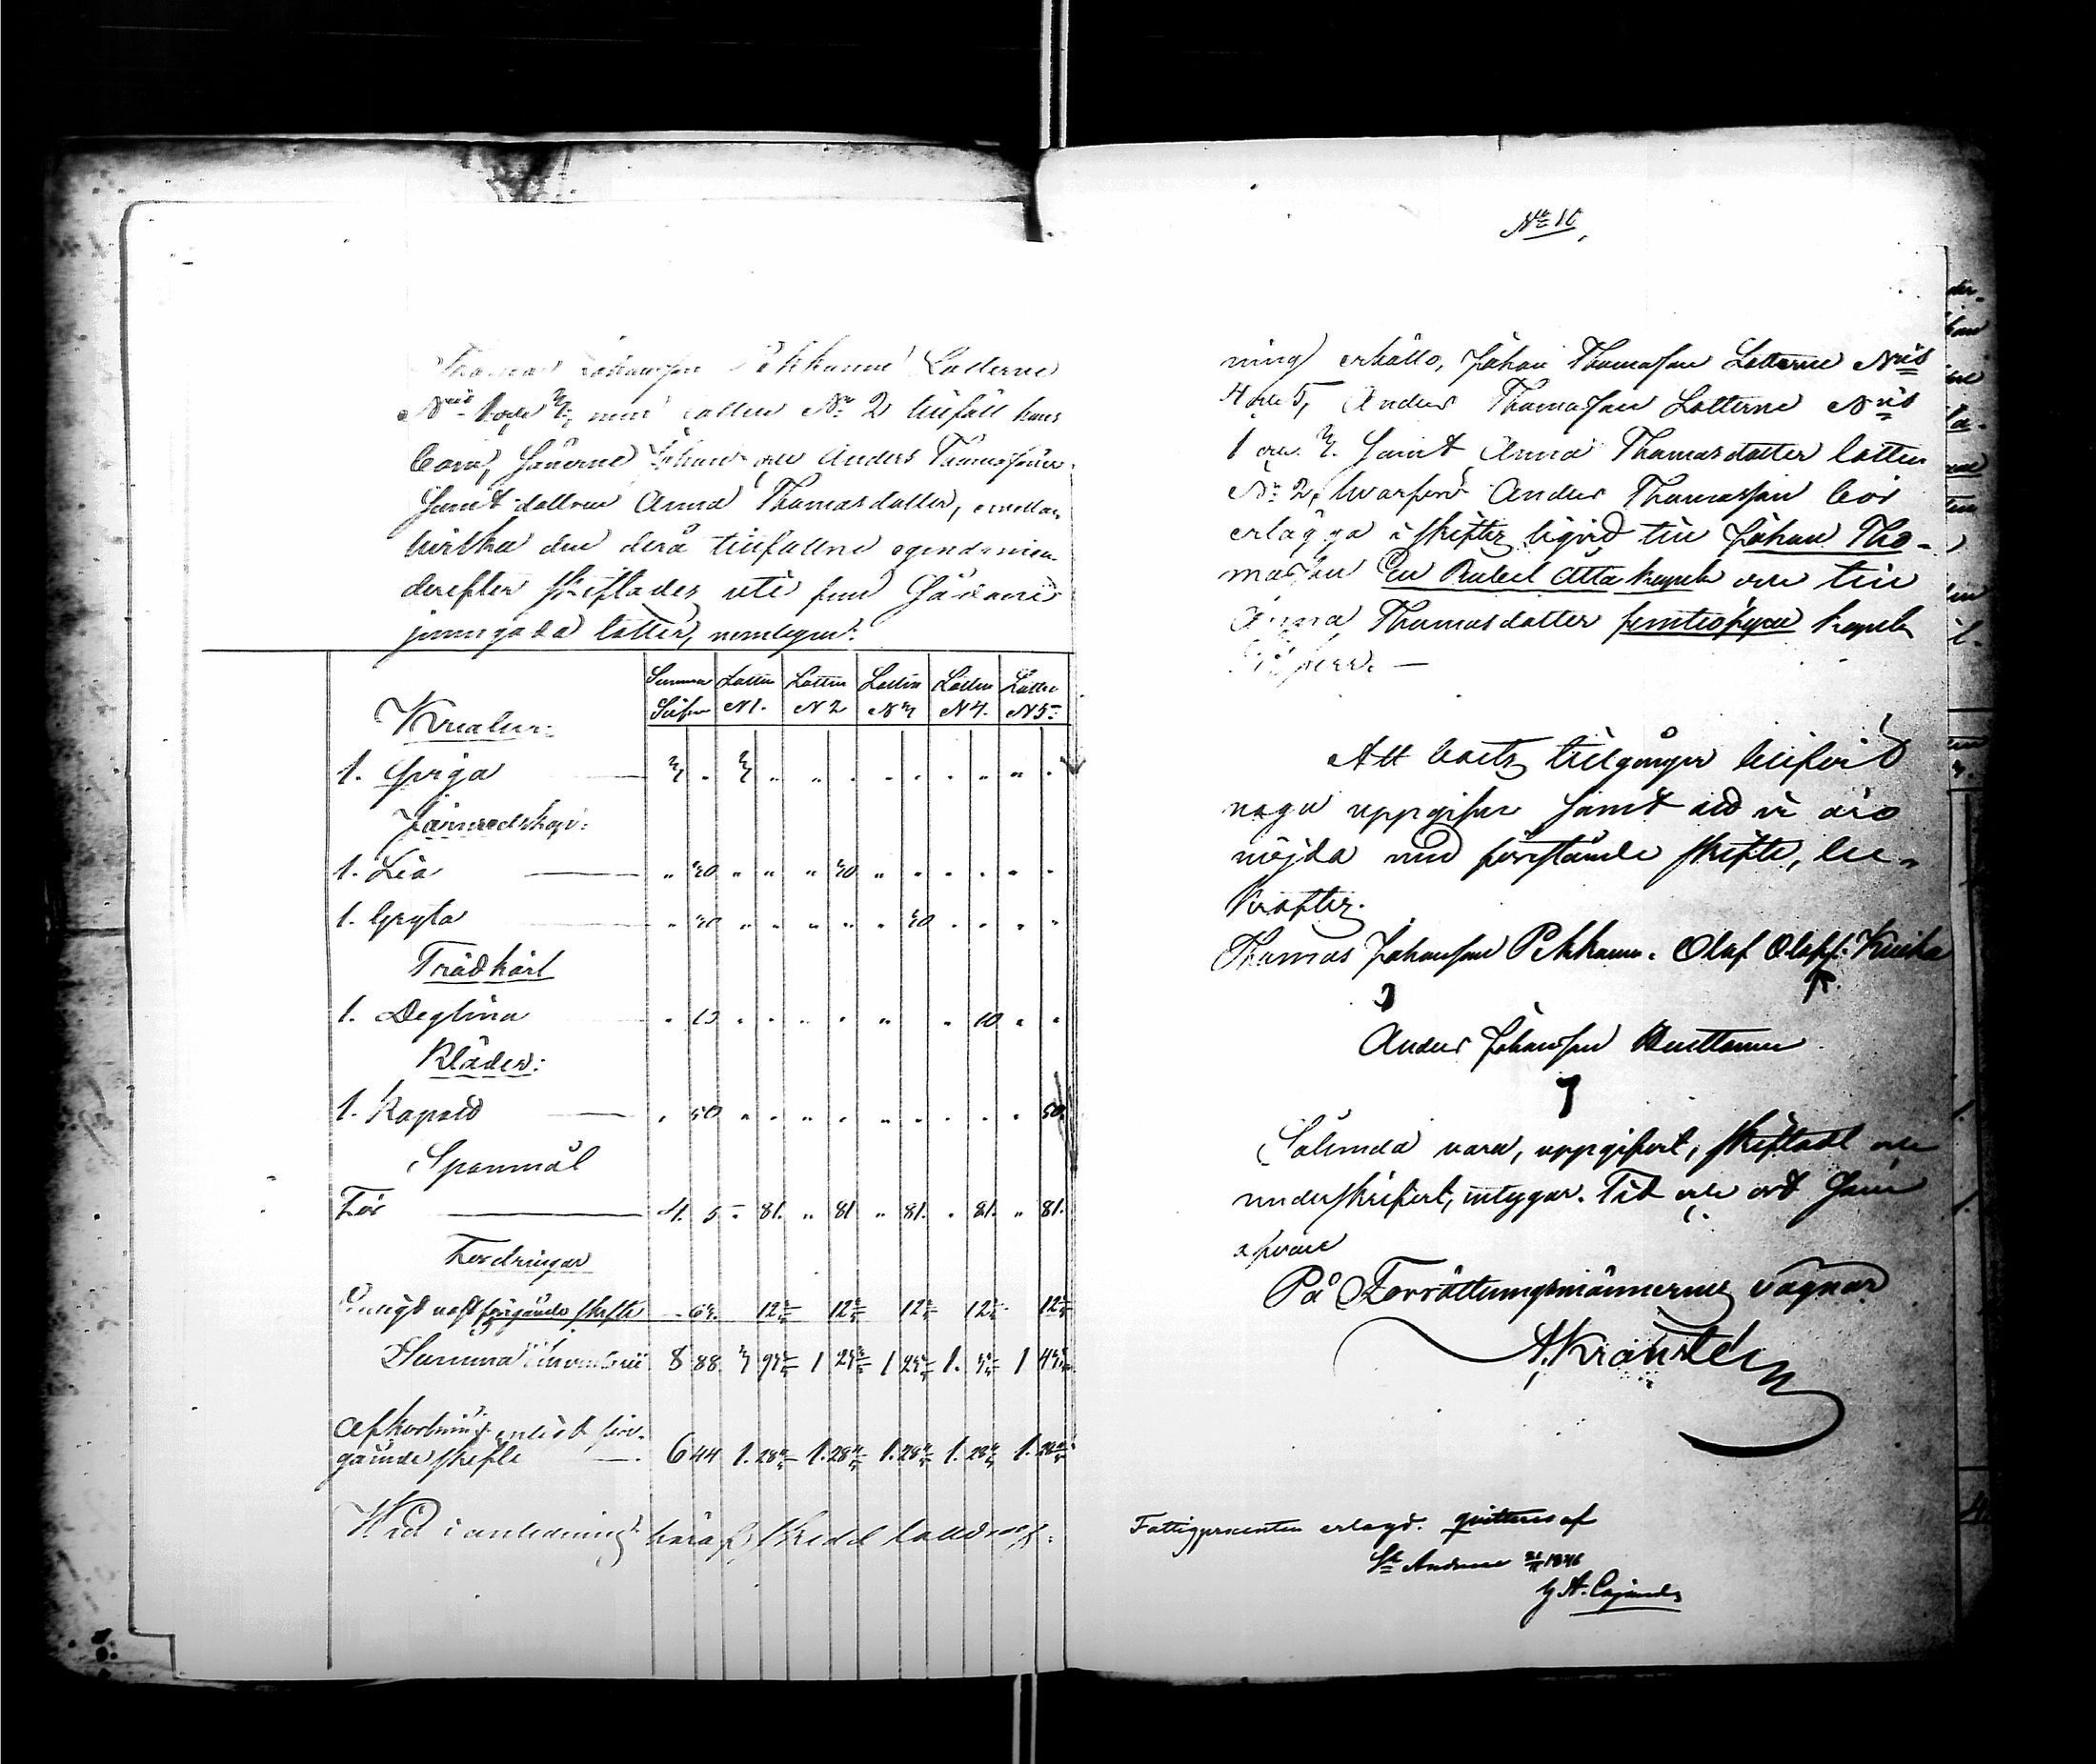 Thomas Johansson Pekkanen Lotterne
N:ris 1 och 3, men Lotten N:o 2 tillföll hans
barn, sönerne Johan och Anders Thomassöner
samt dottren Anna Thomasdotter, emellan
hvilka den derå tillfallne egendomen
derefter skiftades uti fem sådane
jemngoda lotter, nemligen:
Summa Lotten Lotten Lotten Lotten Lotten
Silfver N 1. N 2 N 3 N 4. N 5
Kreatur:
1. Qviga 3 . 3 . „ . . . . „ „ .
Jernredskap:
1. Lia „ 30 „ „ „ 30 „ . . . . .
1. Gryta „ 30 „ „ „ „ „ 30 . . . „
Trädkärl
1. Degtina . 10 . . „ . „ . 10 . .
Kläder:
1. Kapott . 50 „ . „ . „ . . . . 50.
Spanmål
För 4. 5 - 81. „ 81 „ 81. . 81. „ 81.
Fordringar
Enligt näst förgående skifte 63. 12 12 12 12 12
Summa Inventarii 8 88 3 93 1 23 1 23 1. 3 1 43
Afkortning enligt före-
gående skifte 6 44 1. 28 1. 28 1. 28 1. 28 1. 28
Wid i anledning häraf skedd lottning
N:o 10,
ning erhöllo, Johan Thomasson Lotterne N:ris
4 och 5, Anders Thomasson Lotterne N:ris
1 och 3. samt Anna Thomasdotter lotten
N:o 2, hvarföre Anders Thomasson bör
erlägga i skiftes liqvid till Johan Tho-
masson En Rubel Åtta kopek och till
Anna Thomasdotter femtiofyra kopek
Silfver. —
Att boets tillgångar blifvit
noga uppgifne samt att vi äro
nöjda med förestående skifte, be-
kräftes.
Thomas Johansson Pekkanen. Olof Olofss:
Anders Johansson
Sålunda vara, uppgifvet, skiftadt och
underskrifvet, intygar. Tid och ort som
ofvan
På Förrättningsmännernes vägnar
A. Kronstedt
Fattigprocenten erlagd. qvitteras af
S:t Andreae 1846
G A. Cajander